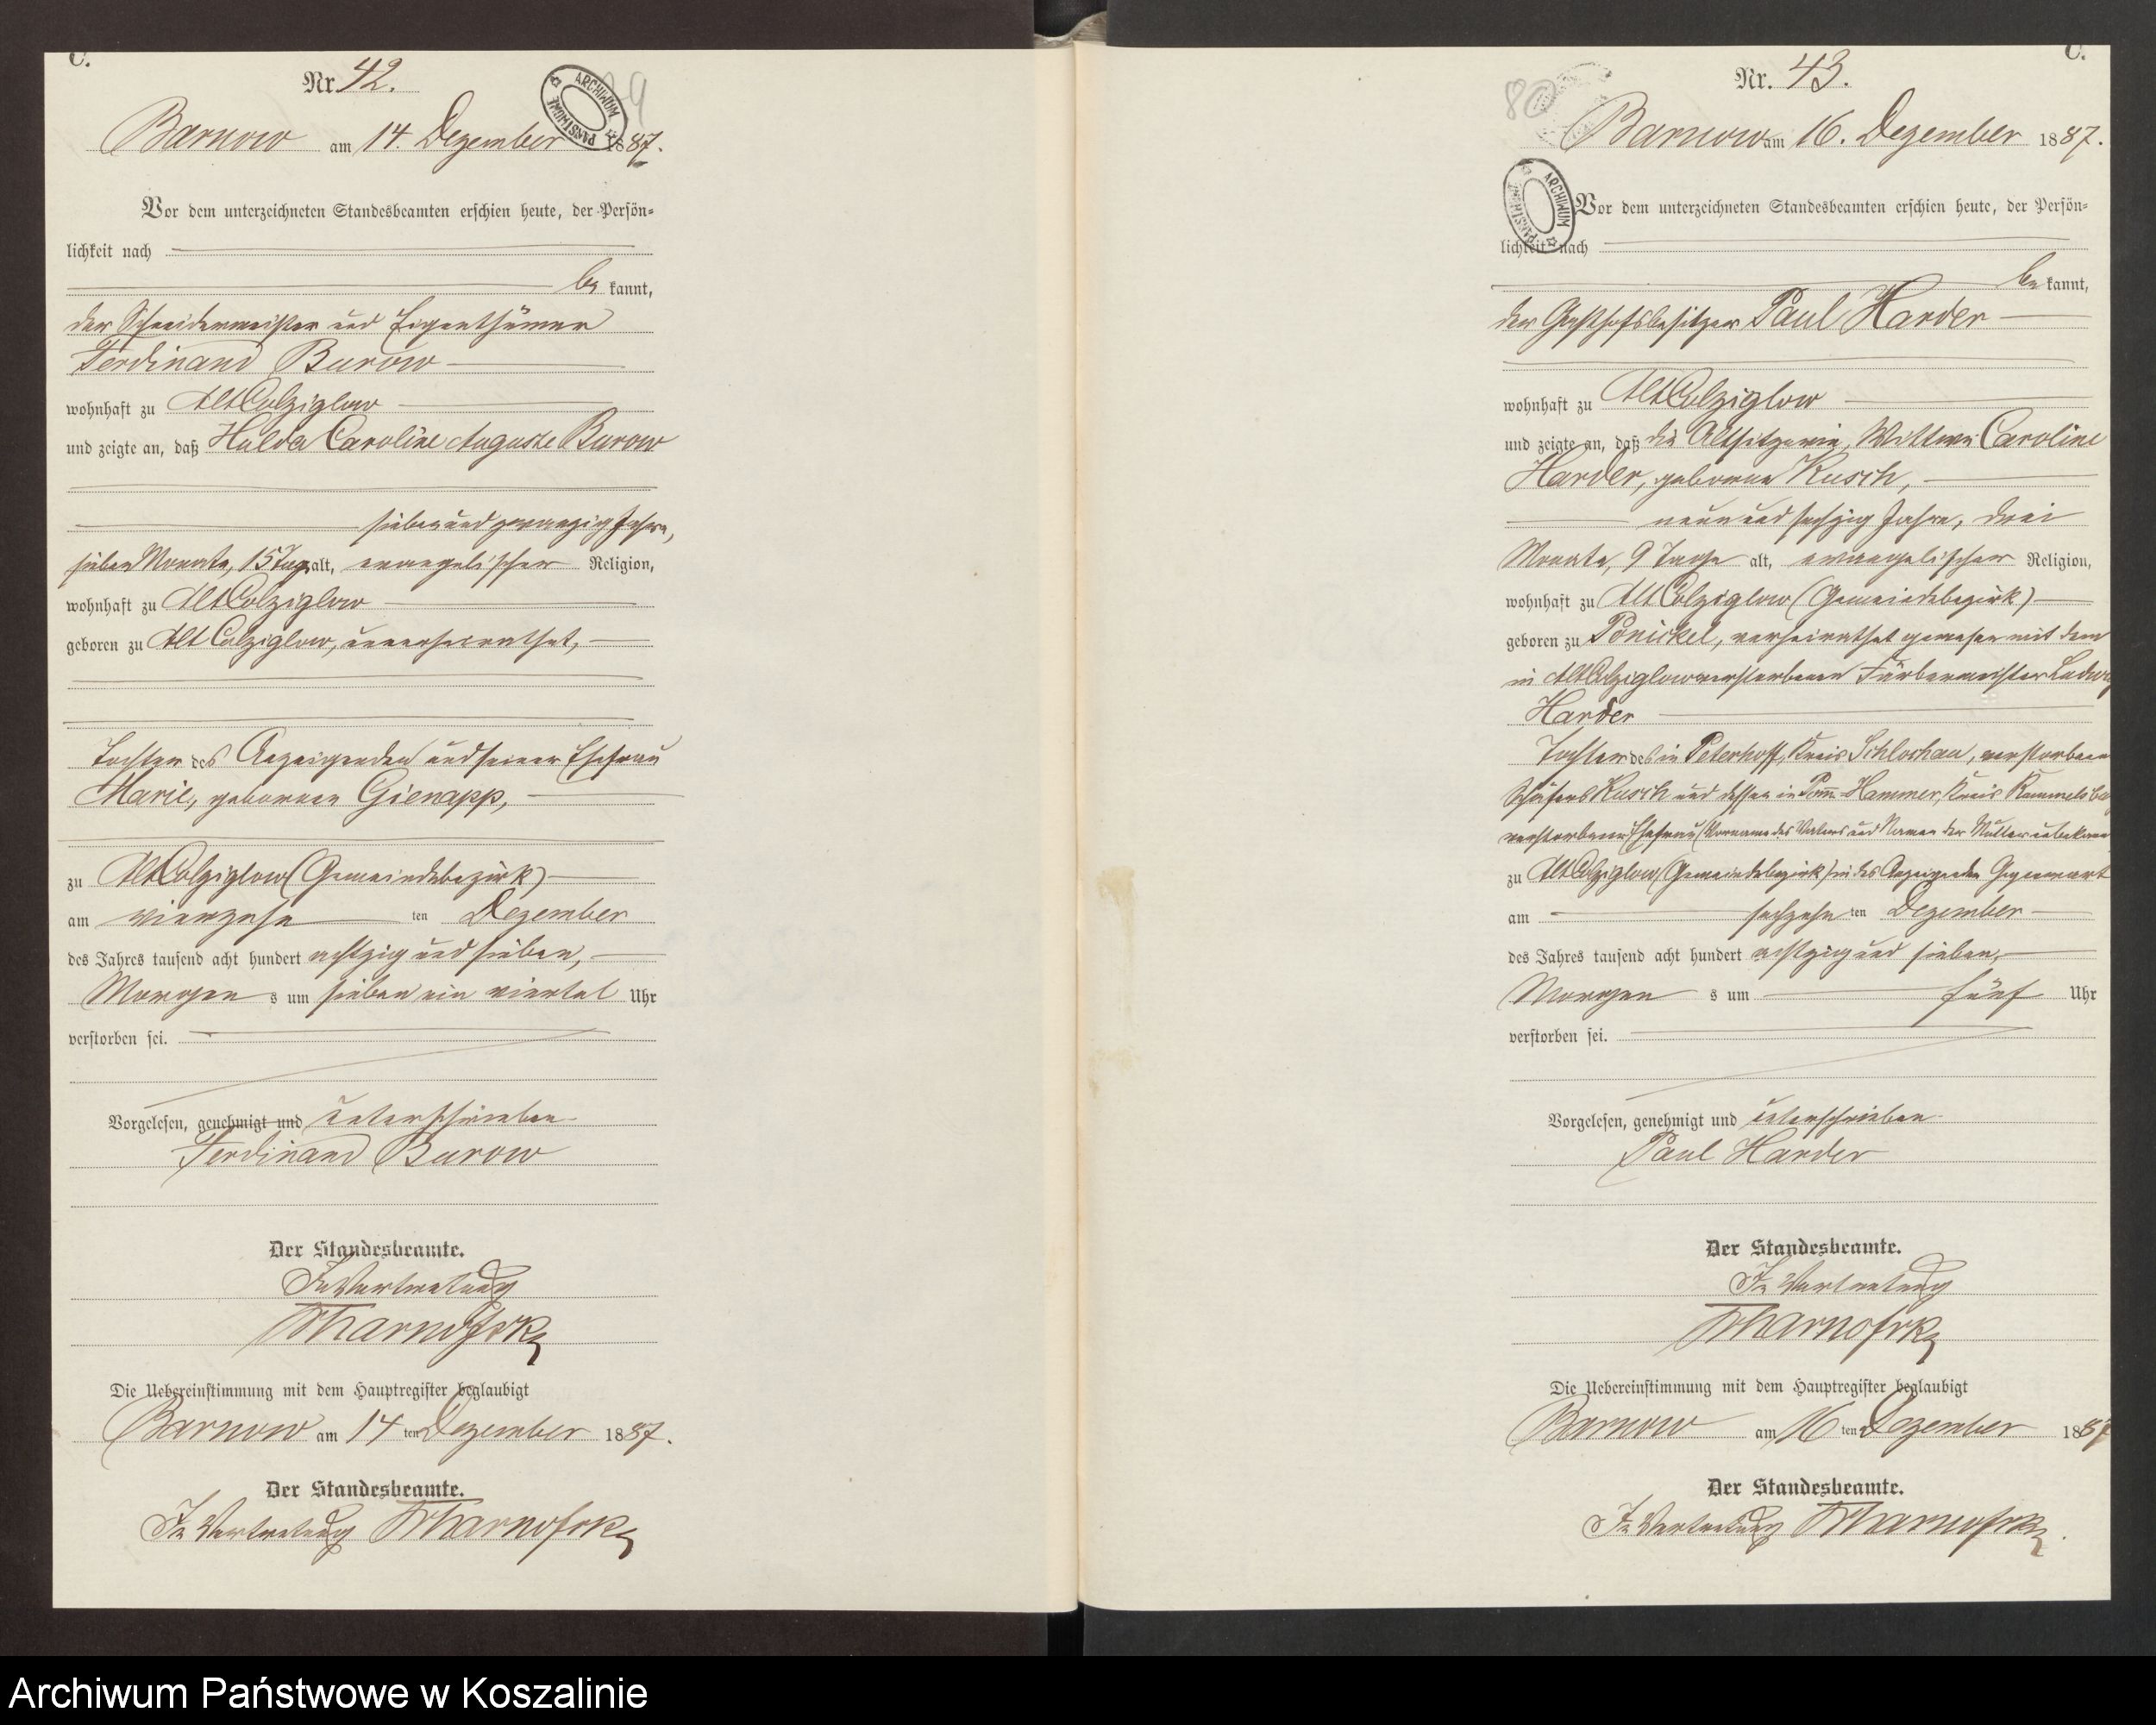 C.
Nr. 42.
ARCHIWUM PAŃSTWOWE
Barnow am 14. Dezember 1887.
Vor dem unterzeichneten Standesbeamten erschien heute, der Persön-
lichkeit nach
be kannt,
der Schneidermeister und Eigenthümer
Ferdinand Burow
wohnhaft zu Alt Colziglow
und zeigte an, daß Hulda Caroline Auguste Burow
sieben und zwanzig Jahre,
sieben Monate, 15 Tage alt, evangelischer Religion,
wohnhaft zu Alt Colziglow
geboren zu Alt Colziglow, unverheirathet,
Tochter des Anzeigenden und seiner Ehefrau
Marie, geborenen Gienapp,
zu Alt Colziglow (Gemeindebezirk)
am vierzehn ten Dezember
des Jahres tausend acht hundert achtzig und sieben,
Morgen s um sieben ein viertel Uhr
verstorben sei.
Vorgelesen, genehmigt und unterschrieben
Ferdinand Burow
Der Standesbeamte.
In Vertretung
Die Uebereinstimmung mit dem Hauptregister beglaubigt
Barnow am 14 ten Dezember 1887.
Der Standesbeamte.
In Vertretung
C.
80
Nr. 43.
Barnow am 16. Dezember 1887.
ARCHIWUM PAŃSTWOWE
Vor dem unterzeichneten Standesbeamten erschien heute, der Persön-
lichkeit nach
be kannt,
der Gasthofsbesitzer Paul Harder
wohnhaft zu Alt Colziglow
und zeigte an, daß die Altsitzerin, Wittwe Caroline
Harder, geborene Kusch,
neun und sechzig Jahre, drei
Monate, 9 Tage alt, evangelischer Religion,
wohnhaft zu Alt Colziglow (Gemeindebezirk)
geboren zu Ponickel, verheirathet gewesen mit dem
in Alt Colziglow verstorbenen Färbermeister Ludwig
Harder
Tochter des in Peterhoff, Kreis Schlochau, verstorbenen
Schäfers Kusch und dessen in Pomm-Hammer, Kreis Rummelsburg
verstorbenen Ehefrau (Vorname des Vaters und Namen der Mutter unbekannt
zu Alt Colziglow (Gemeindebezirk) in des Anzeigenden Gegenwart
am sechzehn ten Dezember
des Jahres tausend acht hundert achtzig und sieben,
Morgen s um fünf Uhr
verstorben sei.
Vorgelesen, genehmigt und unterschrieben
Paul Harder
Der Standesbeamte.
In Vertretung
Die Uebereinstimmung mit dem Hauptregister beglaubigt
Barnow am 16 ten Dezember 1887
Der Standesbeamte.
In Vertretung
Archiwum Państwowe w Koszalinie